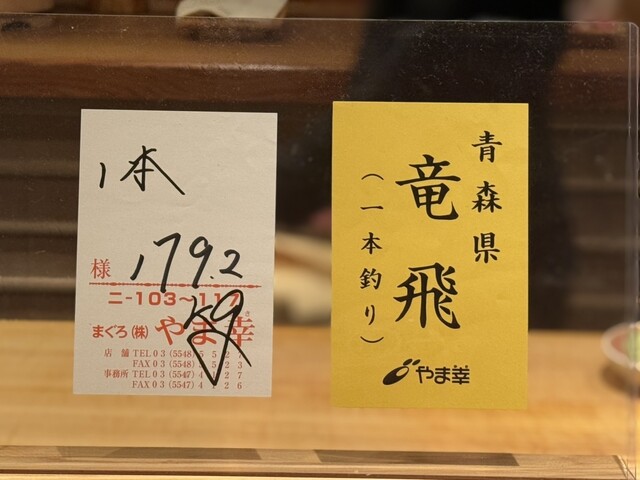 1本
様 179.2
kg
ニ-103~117
まぐろ(株)やま幸
店 舗 TEL 03 (5548)
FAX 03 (5548)
事務所 TEL 03 (5547) 4127
FAX 03 (5547) 4126
青森県
竜飛
(一本釣り)
やま幸